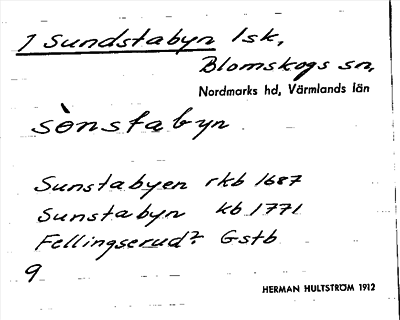 1 Sundstabyn lsk,
Blomskogs sn,
Nordmarks hd, Värmlands län
sònstabyn
Sunstabyen rkb 1687
Sunstabyn kb 1771
Fellingserud? Gstb
9
HERMAN HULTSTRÖM 1912